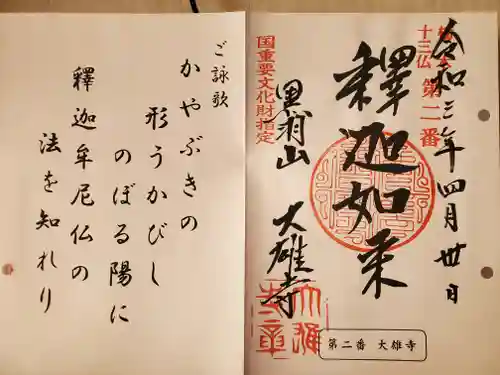 令和三年四月卅日
十三仏
第二番
釋迦如来
国重要文化財指定
黒羽山
大雄寺
第二番 大雄寺
ご詠歌
かやぶきの
形うかびし
のぼる陽に
釋迦牟尼仏の
法を知れり